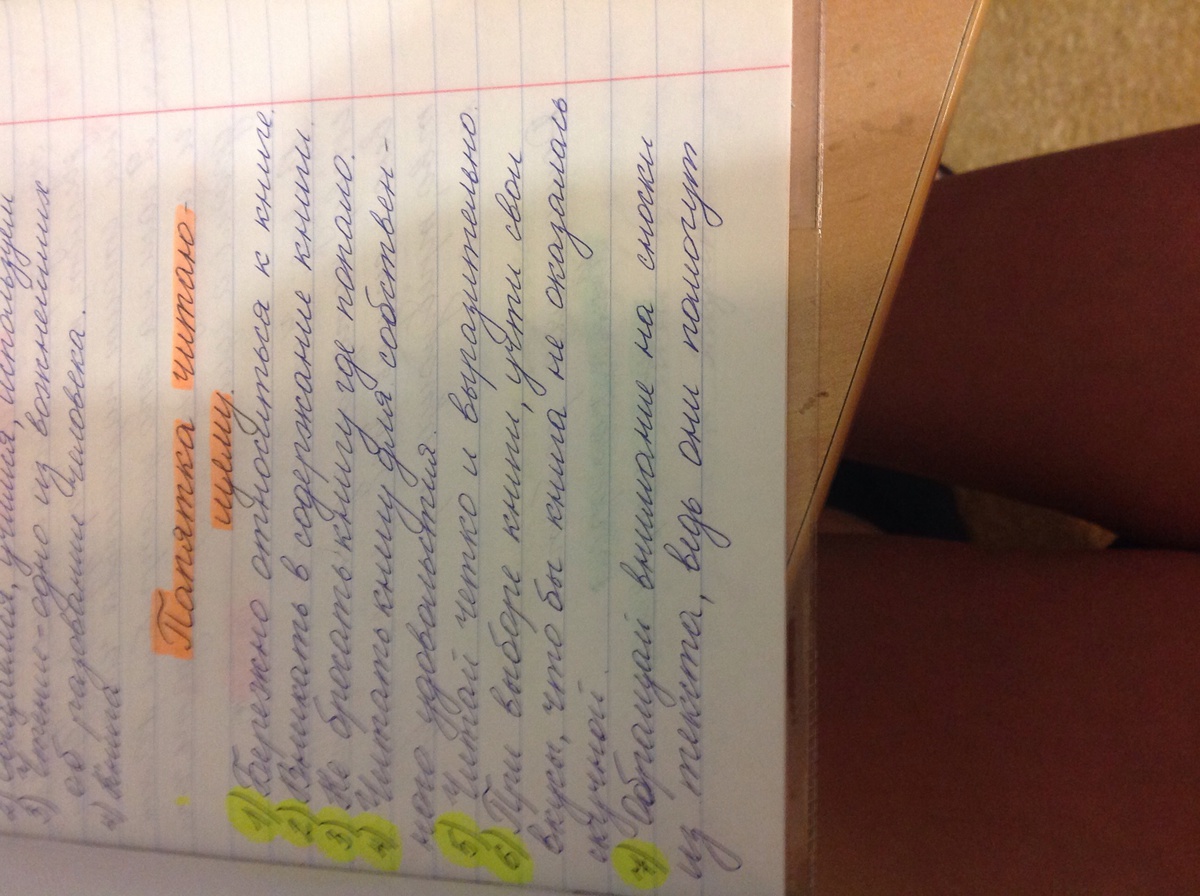 учения, используй
3) Чтение-одно из вожненших
образовании Человека.
4) Книга
Папятка читаю-
щему.
1) Бережно относиться к книге.
2) Вникать в содержание книги.
3) Не бросать книгу где попало.
4) Читать книгу для собствен-
ного удовольствия.
5) Читай четко и выразительно.
6) При выборе книги, учти свои
вкусы, что бы книга не оказалась
скучной.
7) Обращай внимание на сноски
из текста, ведь они помогут